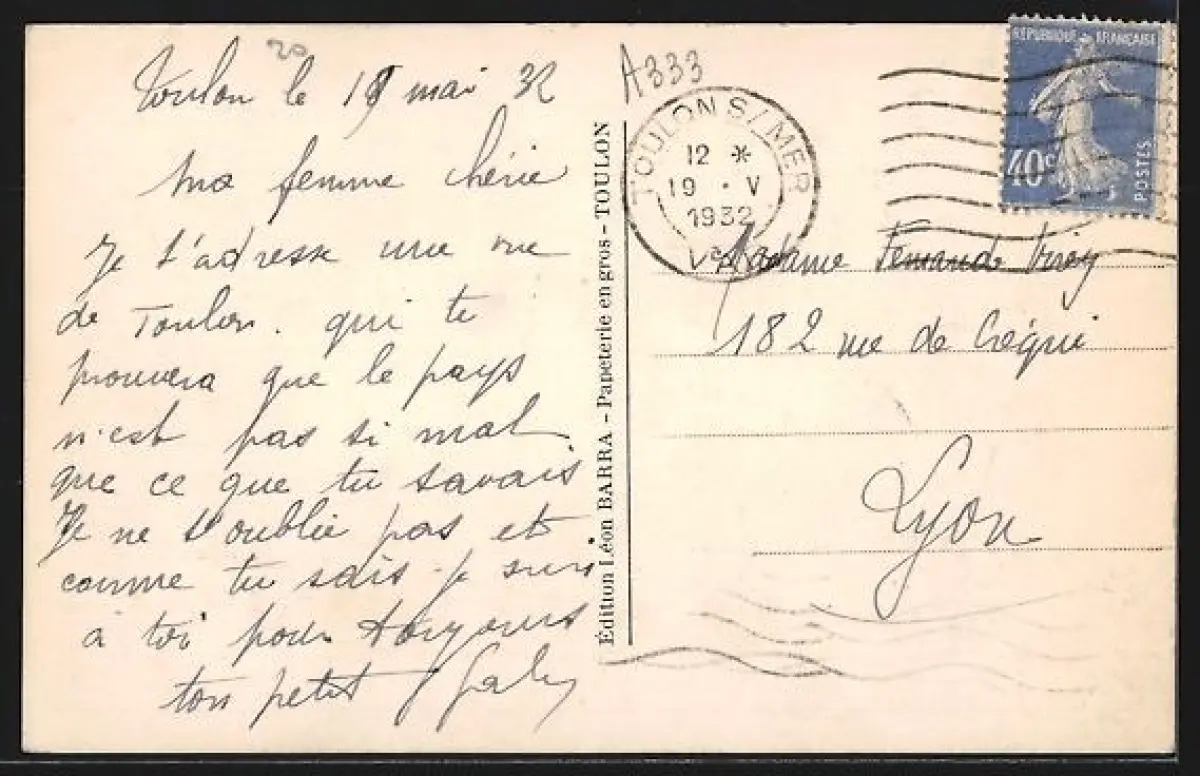 20
Toulon le 19 mai 32
Ma femme chérie
Je t'adresse une vue
de Toulon. qui te
prouvera que le pays
n'est pas si mal
que ce que tu savais
Je ne t'oublie pas et
comme tu sais je suis
à toi pour toujours
ton petit Gaby
Édition Léon BARRA - Papeterie en gros - TOULON
A333
TOULON S/MER
12 *
19 · V
1932
RÉPUBLIQUE FRANÇAISE
40c
POSTES
Madame Fernande Virey
182 rue de Créqui
Lyon